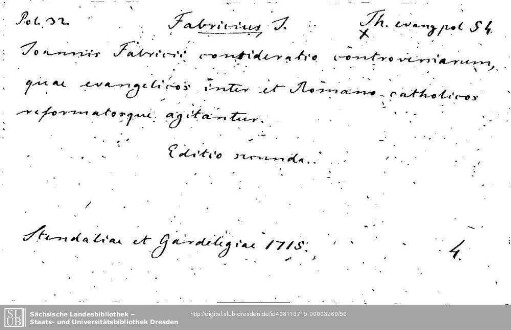 Pol. 32. Fabricius, J. Th. evang. pol. 54.
x
Joannis Fabricii consideratio controversiarum,
quae evangelicos inter et Romano-catholicos
reformatosque agitantur.
Editio secunda.
Stendaliae et Gardelegiae 1715.
4.
SLUB
Sächsische Landesbibliothek –
Staats- und Universitätsbibliothek Dresden